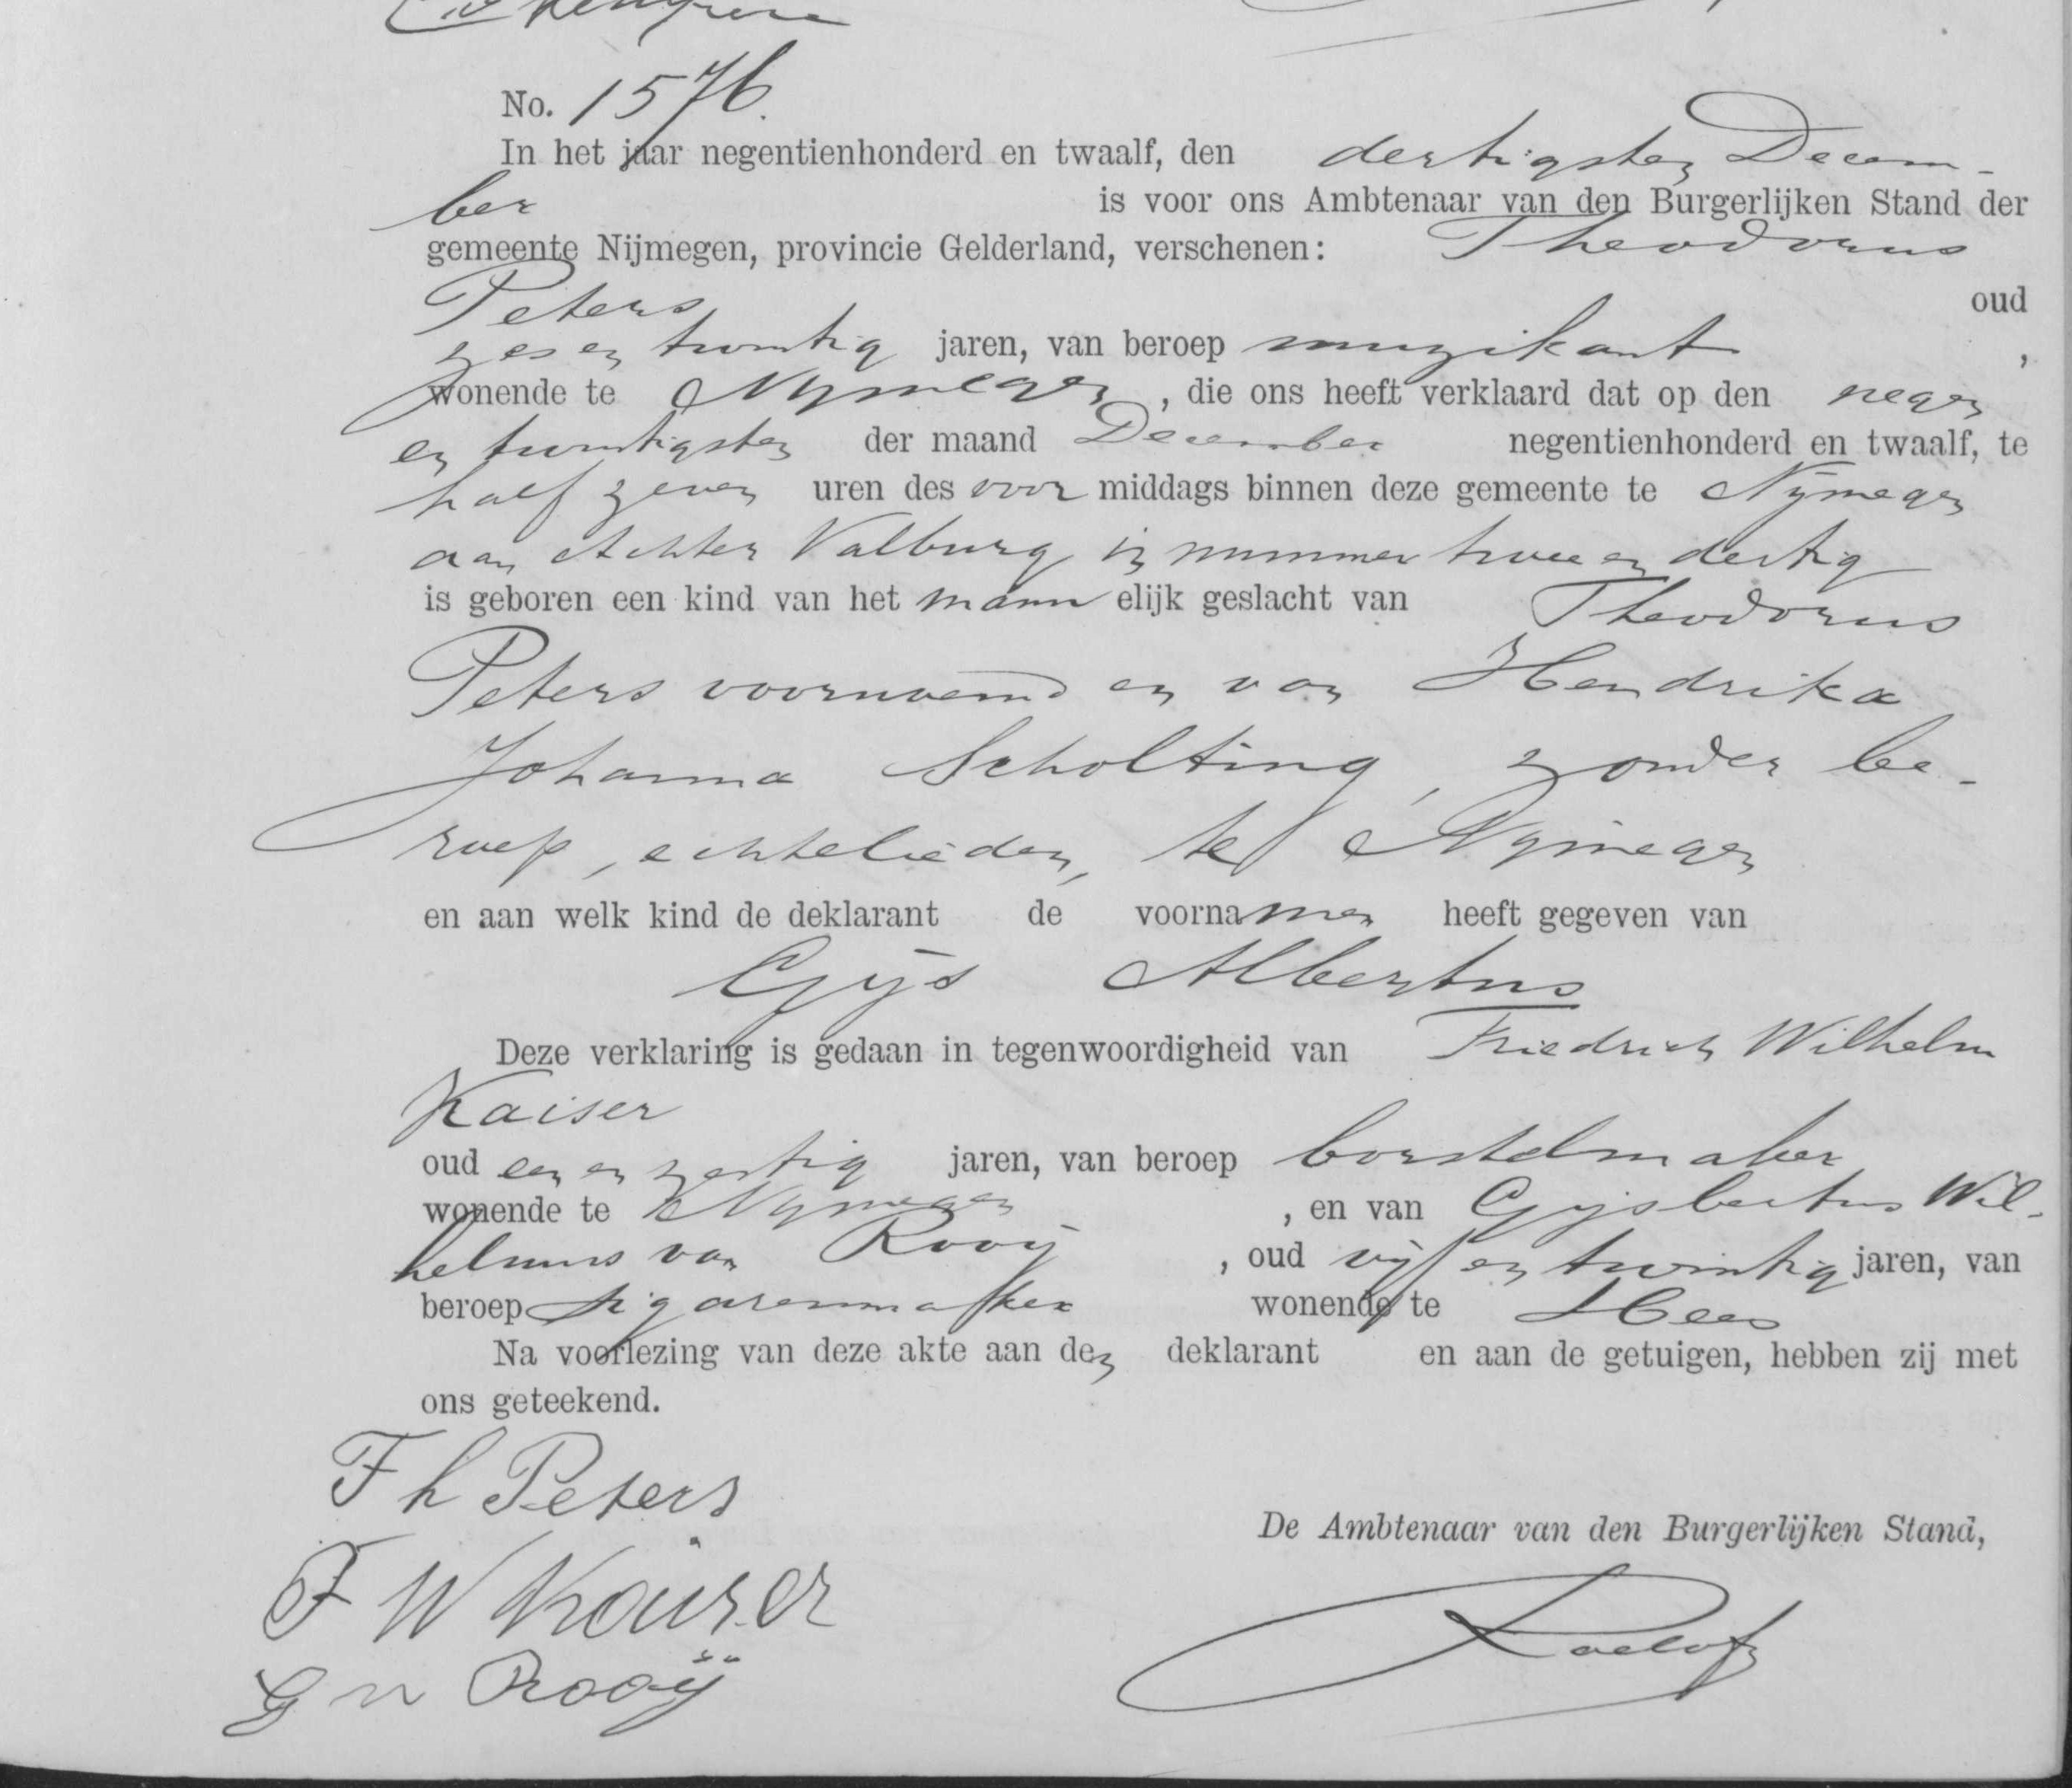 No. 1576.
In het jaar negentienhonderd en twaalf, den dertigsten Decem-
ber is voor ons Ambtenaar van den Burgerlijken Stand der
gemeente Nijmegen, provincie Gelderland, verschenen: Theodorus
Peters oud
zes en twintig jaren, van beroep muzikant,
wonende te Nijmegen, die ons heeft verklaard dat op den negen
en twintigsten der maand December negentienhonderd en twaalf, te
half zeven uren des voor middags binnen deze gemeente te Nijmegen
aan Achter Valburg in nummer twee en dertig
is geboren een kind van het mann elijk geslacht van Theodorus
Peters voornoemd en van Hendrika
Johanna Scholting, zonder be-
roep, echtelieden, te Nijmegen
en aan welk kind de deklarant de voornamen heeft gegeven van
Gijs Albertus
Deze verklaring is gedaan in tegenwoordigheid van Friedrich Wilhelm
Kaiser
oud een en zestig jaren, van beroep borstelmaker
wonende te Nijmegen, en van Gijsbertus Wil-
helmus van Rooij, oud vijf en twintig jaren, van
beroep sigarenmaker wonende te Hees
Na voorlezing van deze akte aan den deklarant en aan de getuigen, hebben zij met
ons geteekend.
Th Peters
De Ambtenaar van den Burgerlijken Stand,
F W Kaiser
G v Rooij